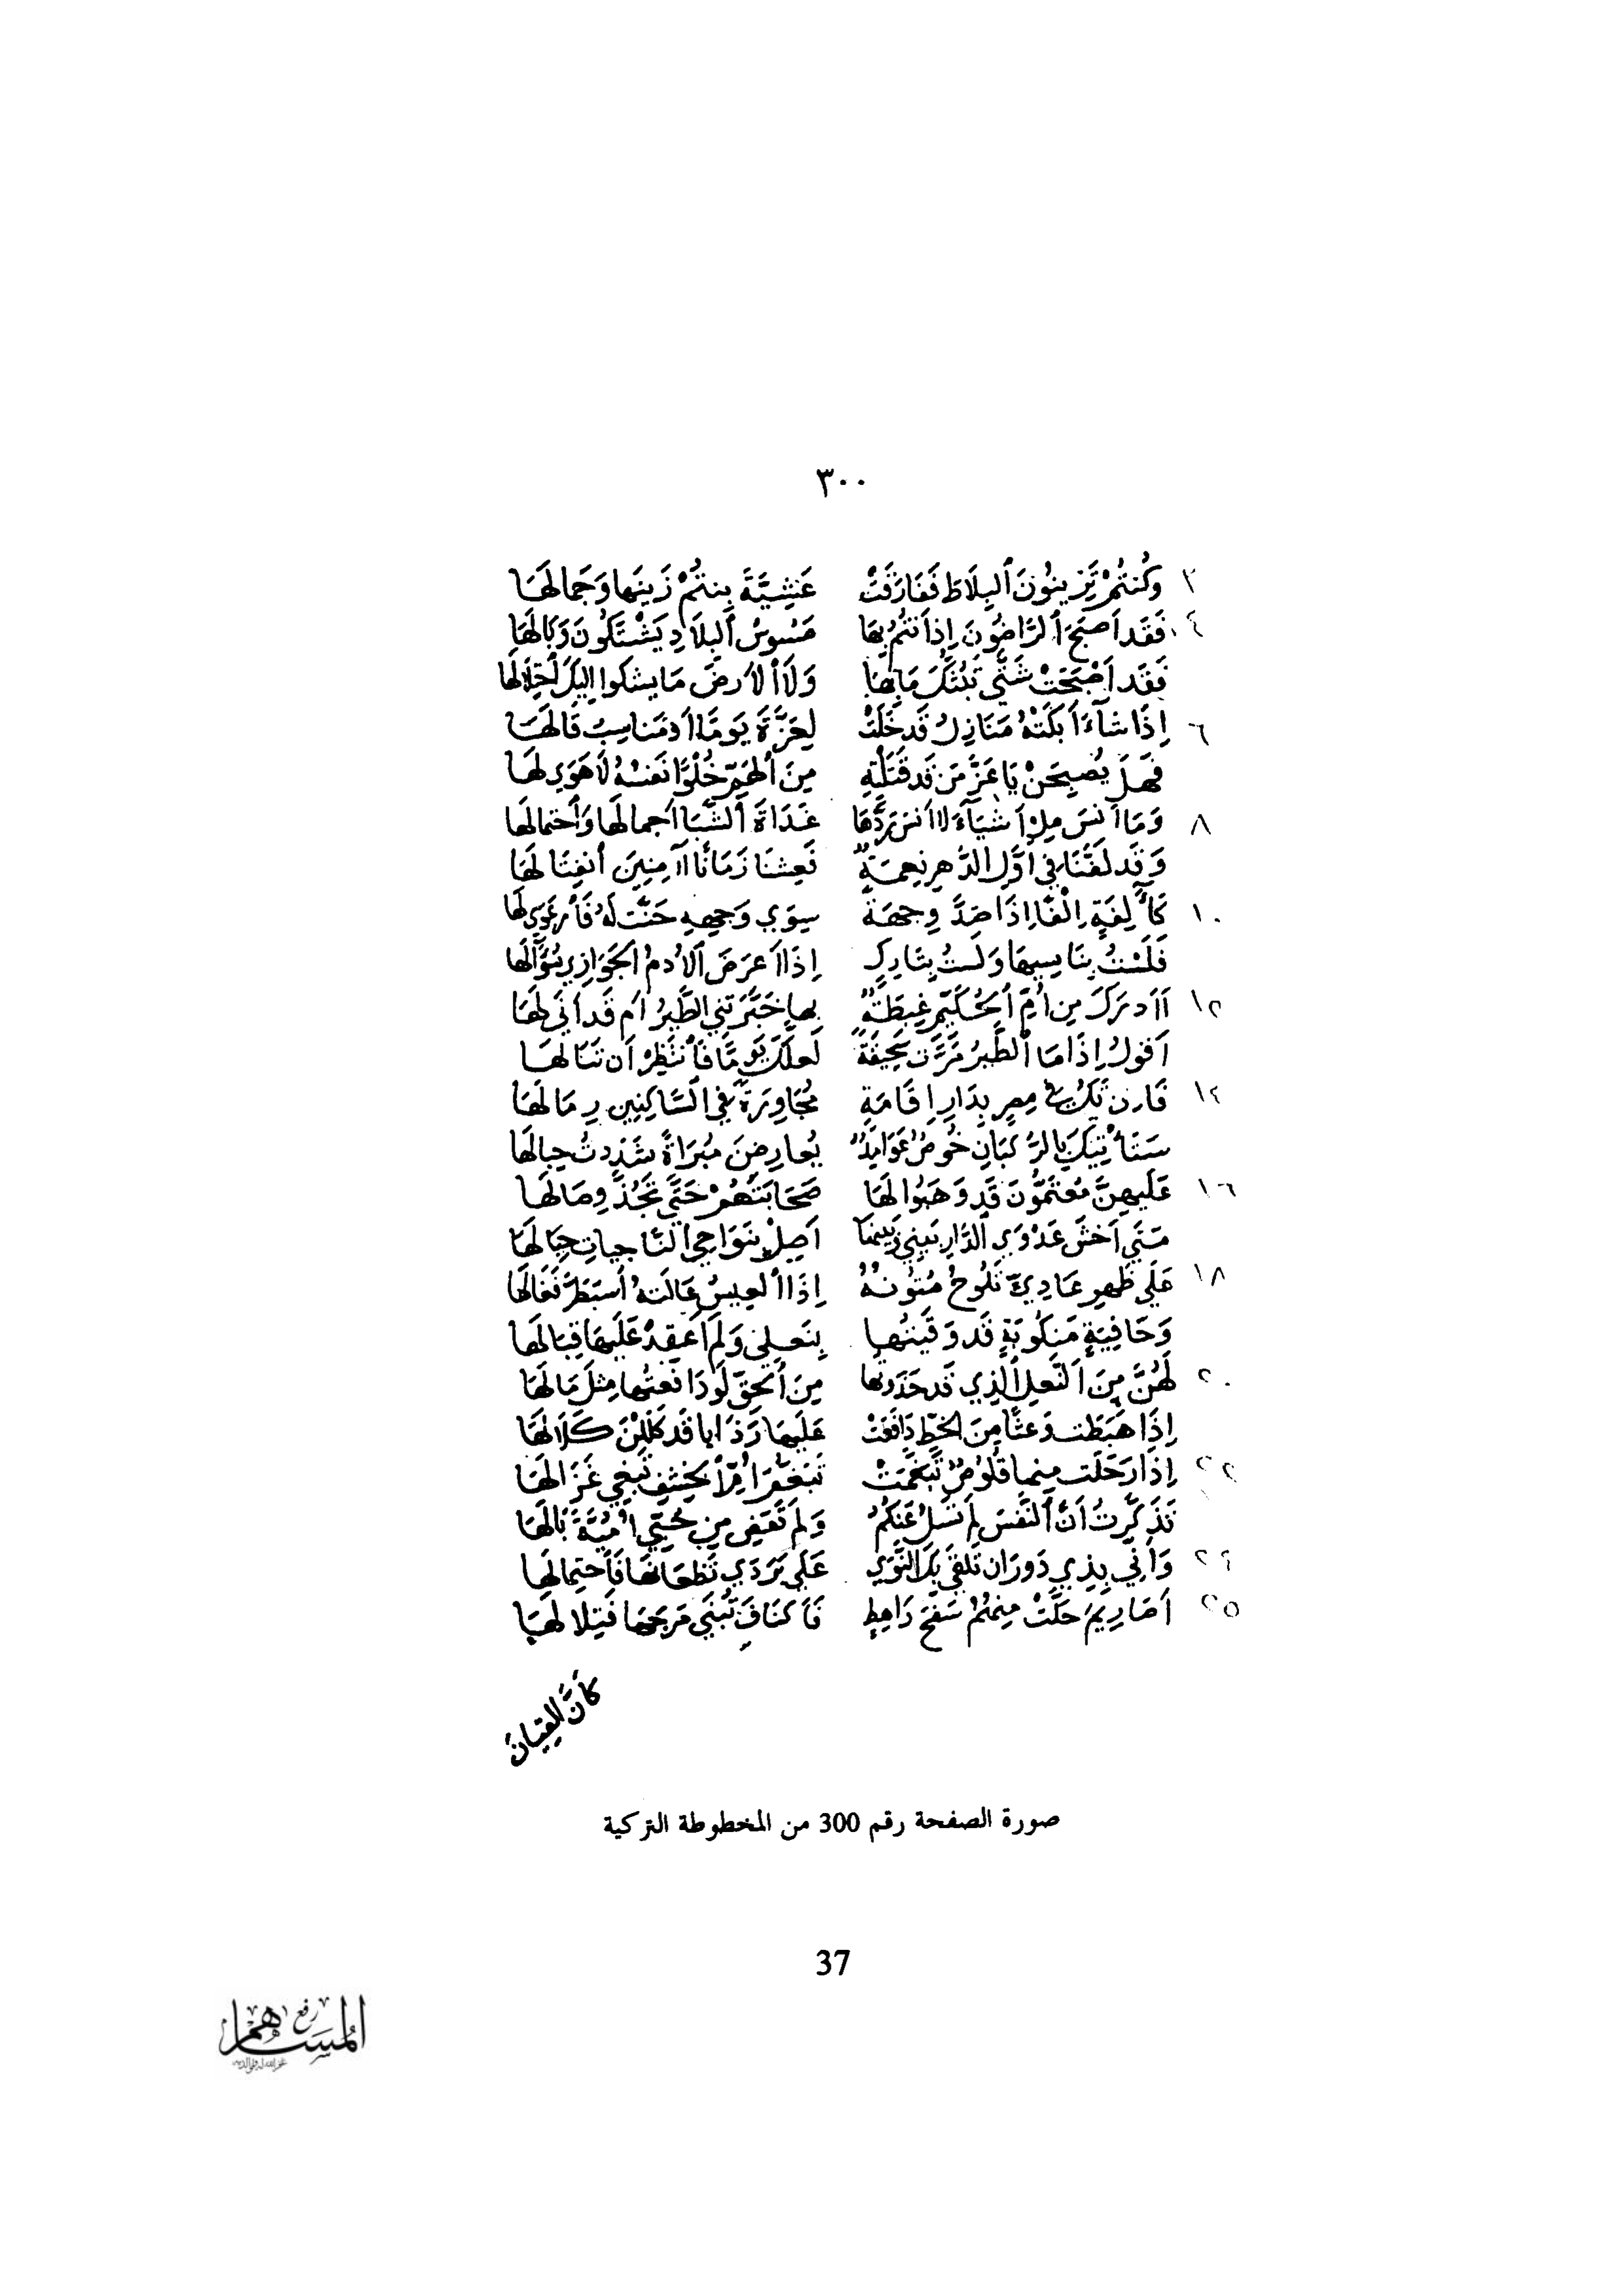 ٣٠٠
٢ وَكُنتُمْ تَزِينُونَ ٱلبِلَاطَ فَفَارَقَتْ عَشِيَّةَ بِنتُمْ زَينَها وَجَمالَهَا
٤ فَقَد اَصبَحَ ٱلرَّاضُونَ إِذ اَنتُم بِهَا مَسُوسُ ٱلبِلَادِ يَشْتَكُونَ وَبَالَهَا
فَقَد اَصْبَحَتْ شَتَّى تَبُثُّكَ مَا بِهَا وَلَا ٱلاَرضَ مَا يشكوا إِلَيكَ ٱختِلَالَهَا
٦ إِذَا شَآءَ اَبكَتْهُ مَنَازِلُ قَد خَلَتْ لِعَزَّةَ يَومًا اَو مَناسِبُ قَالَهَا
فَهَل يُصبِحَنْ يَا عَزَّ مَن قَد قَتَلْتِهِ مِنَ ٱلهَمِّ خُلْوًا نَفسُهُ لَا هَوَى لَهَا
٨ وَمَا اَنسَ مِلْ اَشيَآءَ لَا اَنسَ رَدَّهَا غَدَاةَ ٱلشَّبَا اَجمالَهَا وَٱحتِمالَهَا
وَقَد لَفَّنَا في اَوَّلِ الدَّهرِ نِعمَةٌ فَعِشنَا زَمَانًا آمِنِينَ ٱنفِتَالَهَا
١٠ كَآلِفَةٍ إِلْفًا إِذَا صَدَّ وِجهَةً سِوَى وَجهِهِ حَنَّت لَهُ فَارعَوَى لَهَا
فَلَسْتُ بِنَاسِيهَا وَلَستُ بِتَارِكٍ إِذَا اَعرَضَ ٱلاُدمُ ٱلجَوَازِي سُؤَالَهَا
١٢ اَاَدرَكَ مِن اُمِّ ٱلحُكَيِّمِ غِبطَةٌ بِهَا خَبَّرَتنِي الطَّيرُ اَم قَد اَنَى لَهَا
اَقولُ إِذَا مَا ٱلطَّيرُ مَرَّت سَحِيقَةً لَعَلَّكَ يَومًا فَٱنتَظِرْ اَن تَنَالَهَا
١٤ فَإِن تَكُ في مِصرٍ بِدَارِ إِقَامَةٍ مُجَاوِرَةً في السَّاكِنِينَ رِمَالَهَا
سَتَأتِيكَ بِالرُّكبَانِ خُوصٌ عَوَامِدٌ يُعارِضنَ مُبرَاةً شَدَدتُ حِبالَهَا
١٦ عَلَيهِنَّ مُعتَمُّونَ قَد وَهَبُوا لَهَا صَحَابَتَهُمْ حَتَّى تَجُذَّ وِصَالَهَا
مَتَى اَخشَ عَدْوَى ٱلدَّارِ بَينِي وَبَينَهَا اَصِلْ بِنَوَاحِي ٱلنَّاجِيَاتِ حِبَالَهَا
١٨ عَلَى ظَهرِ عَادِيٍّ تَلُوحُ مُتُونُهُ إِذَا ٱلعِيسُ عَالَتهُ ٱسبَطَرَّ فَعَالَهَا
وَحَافِيَةٍ مَنكُوبَةٍ قَد وَقَيتُها بِنَعلِي وَلَم اَعقِدْ عَلَيهَا قِبَالَهَا
٢٠ لَهُنَّ مِنَ ٱلنَّعلِ ٱلَّذِي قَد حَذَوتُهَا مِنَ ٱلحَقِّ لَو دَافَعتُها مِثلُ مَالَهَا
إِذَا هَبَطَت وَعثًا مِنَ الخَطِّ دَافَعَتْ عَلَيهَا رَذَايا قَد كَلِلْنَ كَلَالَهَا
٢٢ إِذَا رَحَلَت مِنها قَلُوصٌ تَبَغَّمَتْ تَبَغُّمَ اُمِّ ٱلخِشفِ تَبغِي غَزَالَهَا
تَذَكَّرتُ اَنَّ ٱلنَّفسَ لَم تَسلُ عَنكُمُ وَلَم تَقضِ مِن حُبِّي اُمَيَّةَ بَالَهَا
٢٤ وَاَنَّى بِذِي دَورَان تَلقَى بِكَ النَّوَى عَلَى بَرَدَى تَظعَانَهَا فَٱحتِمالَهَا
٢٥ اَصَارِيمُ حَلَّتْ مِنهُمُ سَفحَ رَاهِطٍ فَاَكنَافَ تُبنَى مَرجَهَا فَتِلالَهَا
كَأَنَّ القِيَانَ
صورة الصفحة رقم 300 من المخطوطة التركية
37
رفع المساهم
غفر الله له ولوالديه